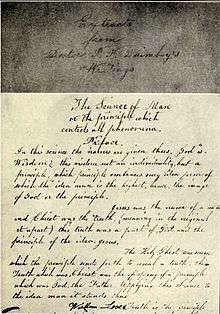 Extracts
from
Doctor P. P. Quimby's
Writings
The Science of Man
or the principle which
controls all phenomena.
Preface.
In this science the names are given thus, God is
Wisdom; this wisdom not an individuality, but a
principle, which principle embraces every idea form, of
which the idea man is the highest, hence, the image
of God or the principle.
Jesus was the name of a man
and Christ was the Truth (meaning in the original
set apart) this truth was a part of God and the
principle of the idea, Jesus.
The Holy Ghost
which the principle made to a truth, the
Truth which was Christ was the offspring of a principle
which was God, the Father. Applying this science to
the idea man it stands thus
Wisdom Love Truth is the principle